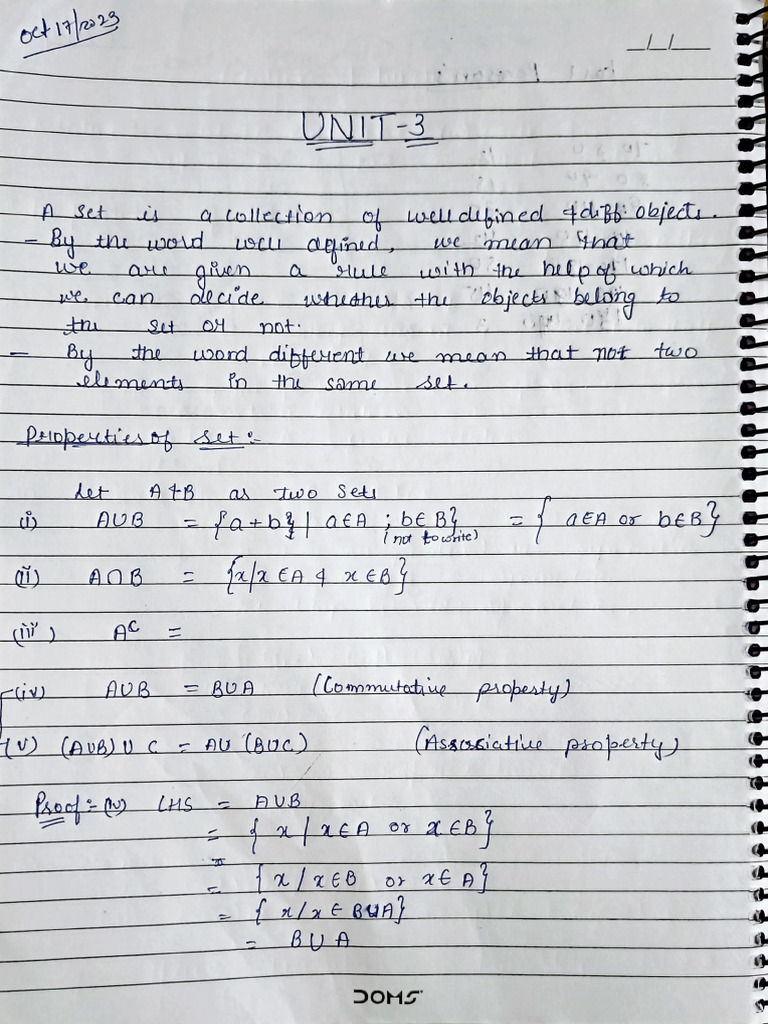 Oct 17/2023
__/__/____
UNIT-3
A set is a collection of well defined & diff. objects.
- By the word well defined, we mean that
we are given a rule with the help of which
we can decide whether the objects belong to
the set or not.
- By the word different we mean that not two
elements in the same set.
Properties of set :-
Let A & B as two sets
(i) A∪B = {a+b} | a∈A ; b∈B} = { a∈A or b∈B}
(not to write)
(ii) A∩B = {x/x ∈A & x ∈B}
(iii) A^c =
(iv) A∪B = B∪A (Commutative property)
(v) (A∪B) ∪ C = A∪ (B∪C) (Associative property)
Proof :- (iv) LHS = A∪B
= { x / x∈A or x∈B}
= { x / x∈B or x∈A}
= { x/x ∈ B∪A}
= B∪A
DOMS